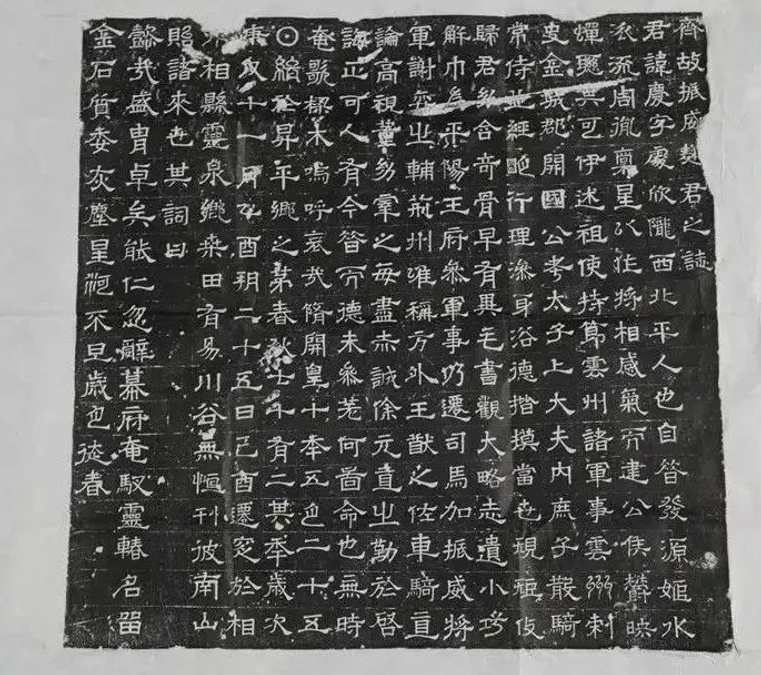 齊故振威麹君之誌
君諱慶字處欣隴西北平人也自昔發源姬水
流周胤稟星以任將相感氣而建公侯欝映
爀其可伊述祖使持節雲州諸軍事雲州刺
史金城郡開國公考太子上大夫內庶子散騎
常侍並經一行理叅身浴德揩摸當世規矩伎
歸君幼合奇骨早有異毛書觀大略志遺小巧
解巾為平陽王府叅軍事仍遷司馬加振威將
軍謝奕出輔荊州雅稱方外王猷之佐車騎直
論高視冀幼宰之每盡赤誠徐元直之勤於啓
誨正可人有今昔而德未叅差何啚命也無時
奄歌樑木嗚呼哀哉隋開皇十年五色二十五
日縮於昇平鄉之第春秋七十有二其年歲次
庚戌十一月辛酉玥二十五日己酉遷窆於相
州相縣靈泉鄉桒田有易川谷無恒刊彼南山
照諸來世其詞曰
懿哉盛胄卓矣能仁忽辭幕府奄馭靈轜名留
金石質委灰塵星馳不旦歲色徒春